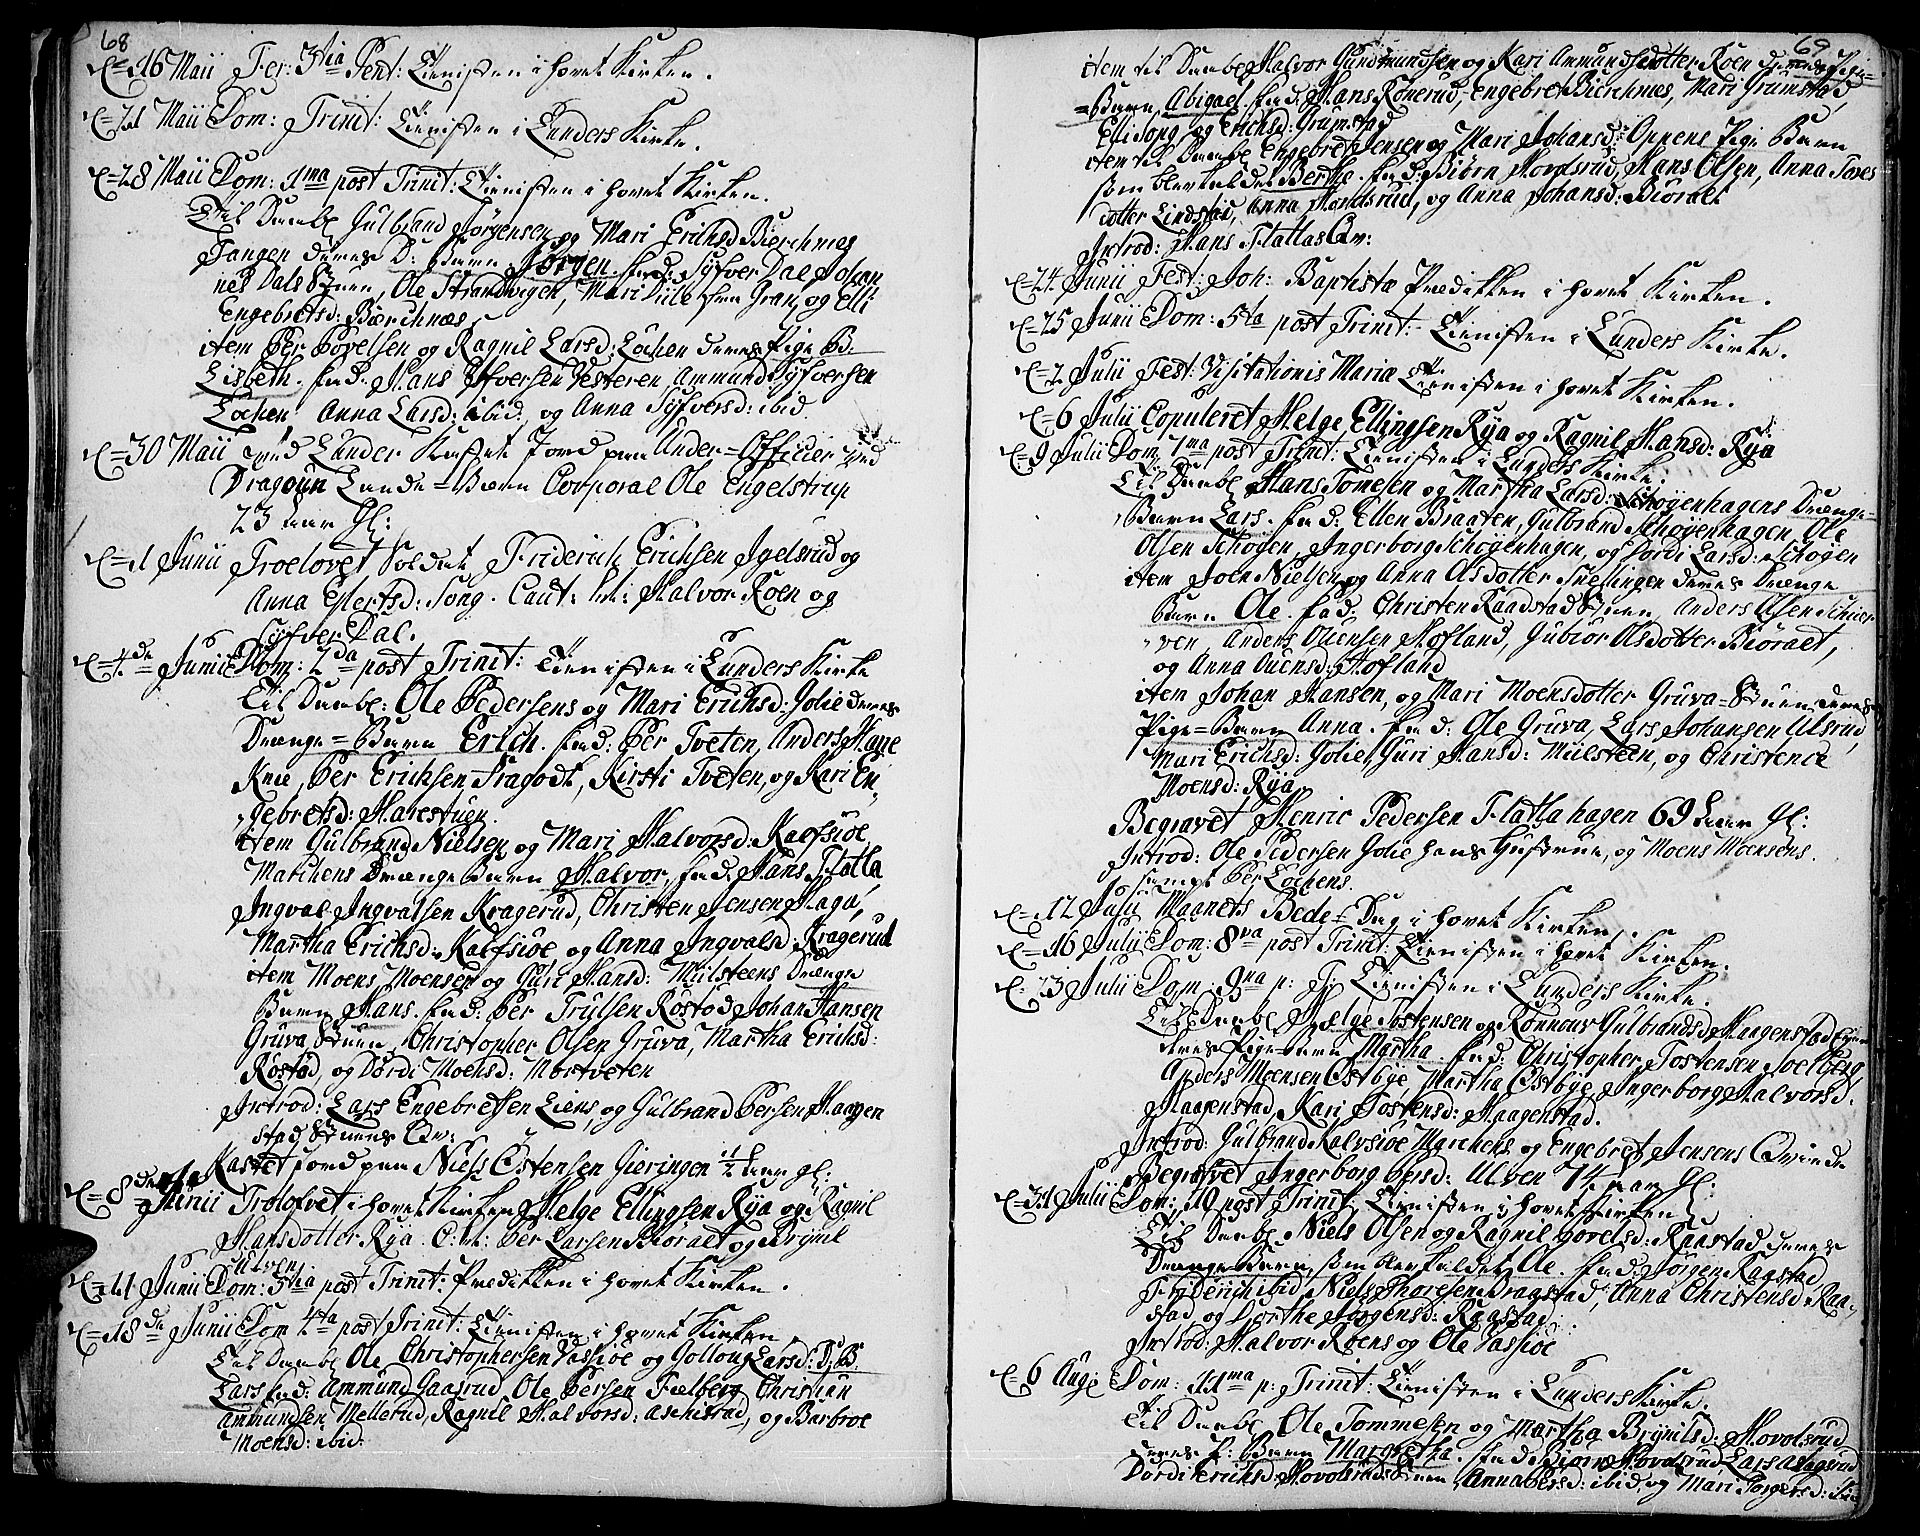 68
d= 16 Maii Fer: 3tia Pent: Tienisten i hovet Kirken.
d= 21 Maii Dom: Trinit: Tienisten i Lunders Kirke.
d= 28 Maii Dom: 1ma post Trinit: Tienisten i hovet Kirken.
Til Daabe Gulbrand Jörgensen og Mari Erichsd Bierchnes
Tangen deres D: Barn Jörgen. fad: Syfver Dal Johan
nes Dals Stuen, Ole Strandvigen, Mari fra Gran, og Elli
Engebretsd: Bierchnæs
item Per Povelsen og Ragnil Larsd: Lochen deres Pige B:
Lisbeth. fad: Hans Vesteren, Ammund Syfversen
Lochen Anna Larsd: ibid, og Anna Syfversd: ibid.
d= 30 Maii ved Lunder Kastet Jord paa Under=Officier ved
Dragoun Corporal Ole Engelstrup
23 aar Gl:
d= 1 Junii Troelovet Soldat Friderich Erichsen Igelsrud og
Anna Eflertsd: Song. Caut: Halvor Roen og
Syfver Dal.
d= 4de Junii Dom: 2da post Trinit: Tienisten i Lunders Kirke
Til Daabe: Ole Pedersens og Mari Erichsd: Jolie deres
Drænge=Barn Erich. fad: Per Tveten, Anders Hane
Knie, Per Erichsen Fragodt, Kirsti Tveten, og Kari En
gebretsd: Harestuen.
item Gulbrand Nielsen og Mari Halvorsd: Kalfsiöe
Marchens Drænge Barn Halvor, fad: Hans Flatla
Ingval Ingvalsen Kragerud, Christen Jensen Haga,
Martha Erichsd: Kalfsiöe og Anna Ingvalsd: Kragerud
item Moens Moensen og Guri Hansd: Mulsteens Drænge
Barn Hans. fad: Per Trulsen Rostad Johan Hansen
Gruva Stuen, Christopher Olsen Gruva, Martha Erichsd:
Rostad, og Dordi Moensd: Morstveten
Introd: Lars Engebretsen Liens, og Gulbrand Persen Haagen
stad Stuens Qv:
Kastet jord paa Niels Östensen Gieringen 1/2 aar gl:
d= 8de Junii Trolofvet i hovet Kirken Helge Ellingsen Rya og Ragnil
Hansdotter Rya. C: Per Larsen Bioraet og Brynil
Ulven.
d= 11 Junii Dom: 3tia post Trinit: Prediken i hovet Kirken.
d= 18de Junii Dom 4ta post Trinit: Tienisten i hovet Kirken
Til Daabe Ole Christophersen Vassiöe og Golloug Larsd: D: B:
Lars fad: Ammund Gaasrud, Ole Persen Fielberg Christian
Ammundsen Mellerud, Ragnil Halvorsd: Aschistad, og Barbroe
Moensd: ibid:
69
item til Daabe Halvor Gundmundsen og Kari Ammundsdotter Roen deres Pige
=Barn Abigael. fad: Hans Ronerud, Engebret Bierchnæs, Mari Grumstad,
Elli Song, og Erichsd: Grumstad
item til Daabe Engebret Jensen og Mari Johansd: Oppens Pige Barn
som blev kaldet Berthe. fad: Biörn Hovdsrud, Hans Olsen, Anna Tores
dotter Lindstad, Anna Hovdsrud, og Anna Johansd: Bioraet
Introd: Hans Flatlas Qv:
d= 24 Junii Fest: Joh: Baptistæ Prediken i hovet Kirken.
d= 25 Junii Dom: 5ta post Trinit: Tienisten i Lunders Kirke.
d= 2 Julii Fest: Visitationis Mariæ Tienisten i hovet Kirken.
d= 6 Julii Copuleret Helge Ellingsen Rya og Ragnil Hansd: Rya
d: 9 Julii Dom 7ma post Trinit: Tienisten i Lunders Kirke.
Til Daabe Hans Tomesen og Martha Larsd: Schogenhagens Drænge=
Barn Lars. fad: Ellen Braaten, Gulbrand Schogenhagen, Ole
Olsen Schogen, Ingerborg Schogenhagen, og Dordi Larsd: Schogen
item Joen Nielsen og Anna Olsdotter Snellingen deres Drænge
Barn Ole. fad: Christen Raadstad Stuen Anders Olsen
ven Anders Ouensen Hofland, Gubior Olsdotter Bioraet,
og Anna Ouensd: Hofland
item Johan Hansen, og Mari Moensdotter Gruva=Stuen deres
Pige=Barn Anna. fad: Ole Gruva, Lars Johansen Ulsrud,
Mari Erichsd: Jolie, Guri Hansd: Mulsteen, og Christence
Moensd: Rya
Begravet Henric Pedersen Flatla hagen 69 aar gl:
Introd: Ole Pedersen Jolie hans Hustrue, og Moens Moensens.
samt Per Lochens.
d= 12 Julii Maanets Bede=Dag i hovet Kirken.
d= 16 Julii Dom: 8va post Trinit: Tienisten i hovet Kirken.
d: 23 Julii Dom: 9na p: Tr: Tienisten i Lunders Kirke.
Til Daabe Helge Tostensen og Ronnou Gulbrandsd Haagenstad Eier
deres Pige=Barn Martha. fad: Christopher Tostensen Joelberg
Anders Moensen Östbye, Martha Östbye, Ingerborg Halvorsd:
Haagenstad, Kari Tostensd: Haagenstad.
Introd: Gulbrand Kalvsiöe Marchens og Engebret Jensens Qvinde
Begrafvet Ingerborg Persd: Ulven 74 aar gl:
d= 31 Julii Dom: 10 post Trinit: Tienisten i hovet Kirken
Til Daabe Niels Olsen og Ragnil Povelsd: Raastad deres
Drænge Barn som blev kaldet Ole. fad: Jörgen Raastad,
Friderich ibid, Niels Thoresen Bragstad, Anna Christensd: Raa=
stad og Dorthe Jörgensd: Raastad
Introd: Halvor Roens og Ole Vassiöe
d= 6 Aug: Dom: 11ma p: Trinit: Tienisten i Lunders Kirke.
Til Daabe Ole Tommesen og Martha Brynilsd: Hovolsrud
deres P: Barn Margretha. fad Biörn Hovolsrud Lars Aslagsrud
Dordi Erichsd: Hovolsruds Stuen, Anna Persd: ibid, og Mari Torgersd: ibid